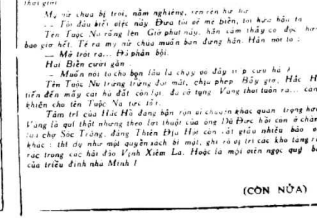 thời gian
Mỹ nữ chưa bị trói, nằm nghiêng, rên rên hư hư
— Tôi đâu biết việc này Đưa tôi về mẹ biên, tôi hứa hậu tạ
Tên Tuộc Na rống lên Giờ phút này, hắn cảm thấy cô độc hơn
bao giờ hết. Té ra mỹ nữ chưa muốn bán đứng hắn. Hắn nói to :
— Mả trời ra... Đi phản bội.
Hai Biên cười gằn.
— Muốn nói to cho bọn lâu la chạy vô đây tiếp cứu hả ?
Tên Tuộc Na trừng trừng đôi mắt, chịu phép Bây giờ, Hắc H
tiến đến mấy cái hũ đất còn lại, đá vỡ tung. Vàng thoi tuôn ra... càng
khiến cho tên Tuộc Na tức tối.
Tâm trí của Hải Hồ đang bận rộn vì chuyện khác quan trọng hơn
Vàng là quí thật nhưng theo lời thuật của ông Đồ Đức hồi còn ở chân
núi chợ Sóc Trăng, đảng Thiên Địa Hội còn cất giấu nhiều báo vật
khác : thí dụ như một quyển sách bí mật, ghi rõ vị trí các kho tàng rải
rác trong các hải đảo Vịnh Xiêm La. Hoặc là một viên ngọc quý báu
của triều đình nhà Minh !
(CÒN NỮA)